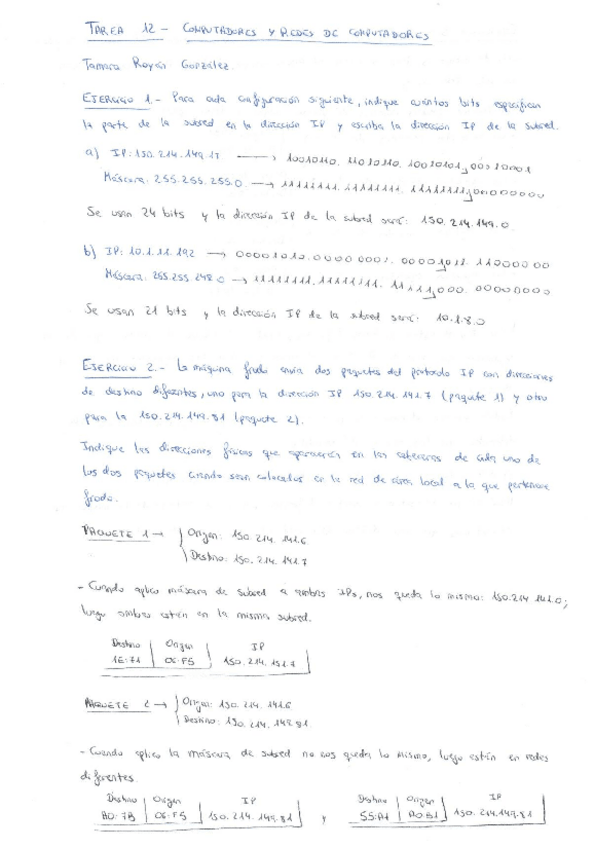 TAREA 12 - COMPUTADORES Y REDES DE COMPUTADORES
Tamara Royán González.
EJERCICIO 1.- Para cada configuración siguiente, indique cuántos bits especifican
la parte de la subred en la dirección IP y escriba la dirección IP de la subred.
a) IP: 150.214.149.17 → 10010110. 11010110. 10010101, 00010001
Máscara: 255.255.255.0. → 11111111. 11111111. 11111111, 00000000
Se usan 24 bits y la dirección IP de la subred será: 150.214.149.0.
b) IP: 10.1.11.192 → 00001010.00000001. 00001011. 11000000
Máscara: 255.255.248.0 → 11111111. 11111111. 11111,000. 00000000
Se usan 21 bits y la dirección IP de la subred será: 10.1.8.0
EJERCICIO 2.- La máquina frodo envía dos paquetes del protocolo IP con direcciones
de destino diferentes, uno para la dirección IP 150.214.141.7 (paquete 1) y otro
para la 150.214.149.81 (paquete 2).
Indique las direcciones físicas que aparecerán en las cabeceras de cada uno de
los dos paquetes cuando sean colocados en la red de área local a la que pertenece
frodo.
PAQUETE 1 → Origen: 150.214.141.6
Destino: 150.214.141.7
- Cuando aplico máscara de subred a ambas IPs, nos queda lo mismo: 150.214.141.0;
luego ambas están en la misma subred.
Destino Origen IP
1E:71 06:F5 150.214.151.7
PAQUETE 2 → Origen: 150.214.141.6
Destino: 150.214.149.81
- Cuando aplico la máscara de subred no nos queda lo mismo, luego están en redes
diferentes.
Destino Origen IP Destino Origen IP
A0:7B 06:F5 150.214.149.81 y 55:A1 A0:B1 150.214.149.81